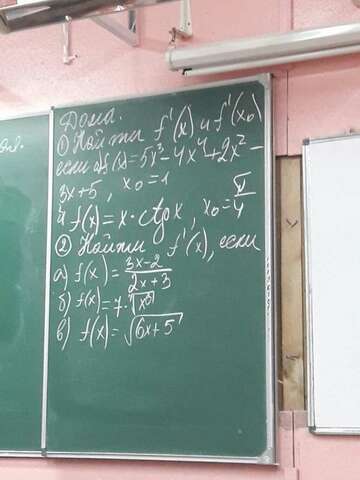 Дома.
1) Найти f'(x) и f'(x₀)
если а) f(x) = 5x³ - 4x⁴ + 2x² -
3x + 5, x₀ = 1
f(x) = x · ctg x, x₀ = π/4
2) Найти f'(x), если
а) f(x) = (3x-2)/(2x+3)
б) f(x) = 7 ·
в) f(x) = √(6x+5)